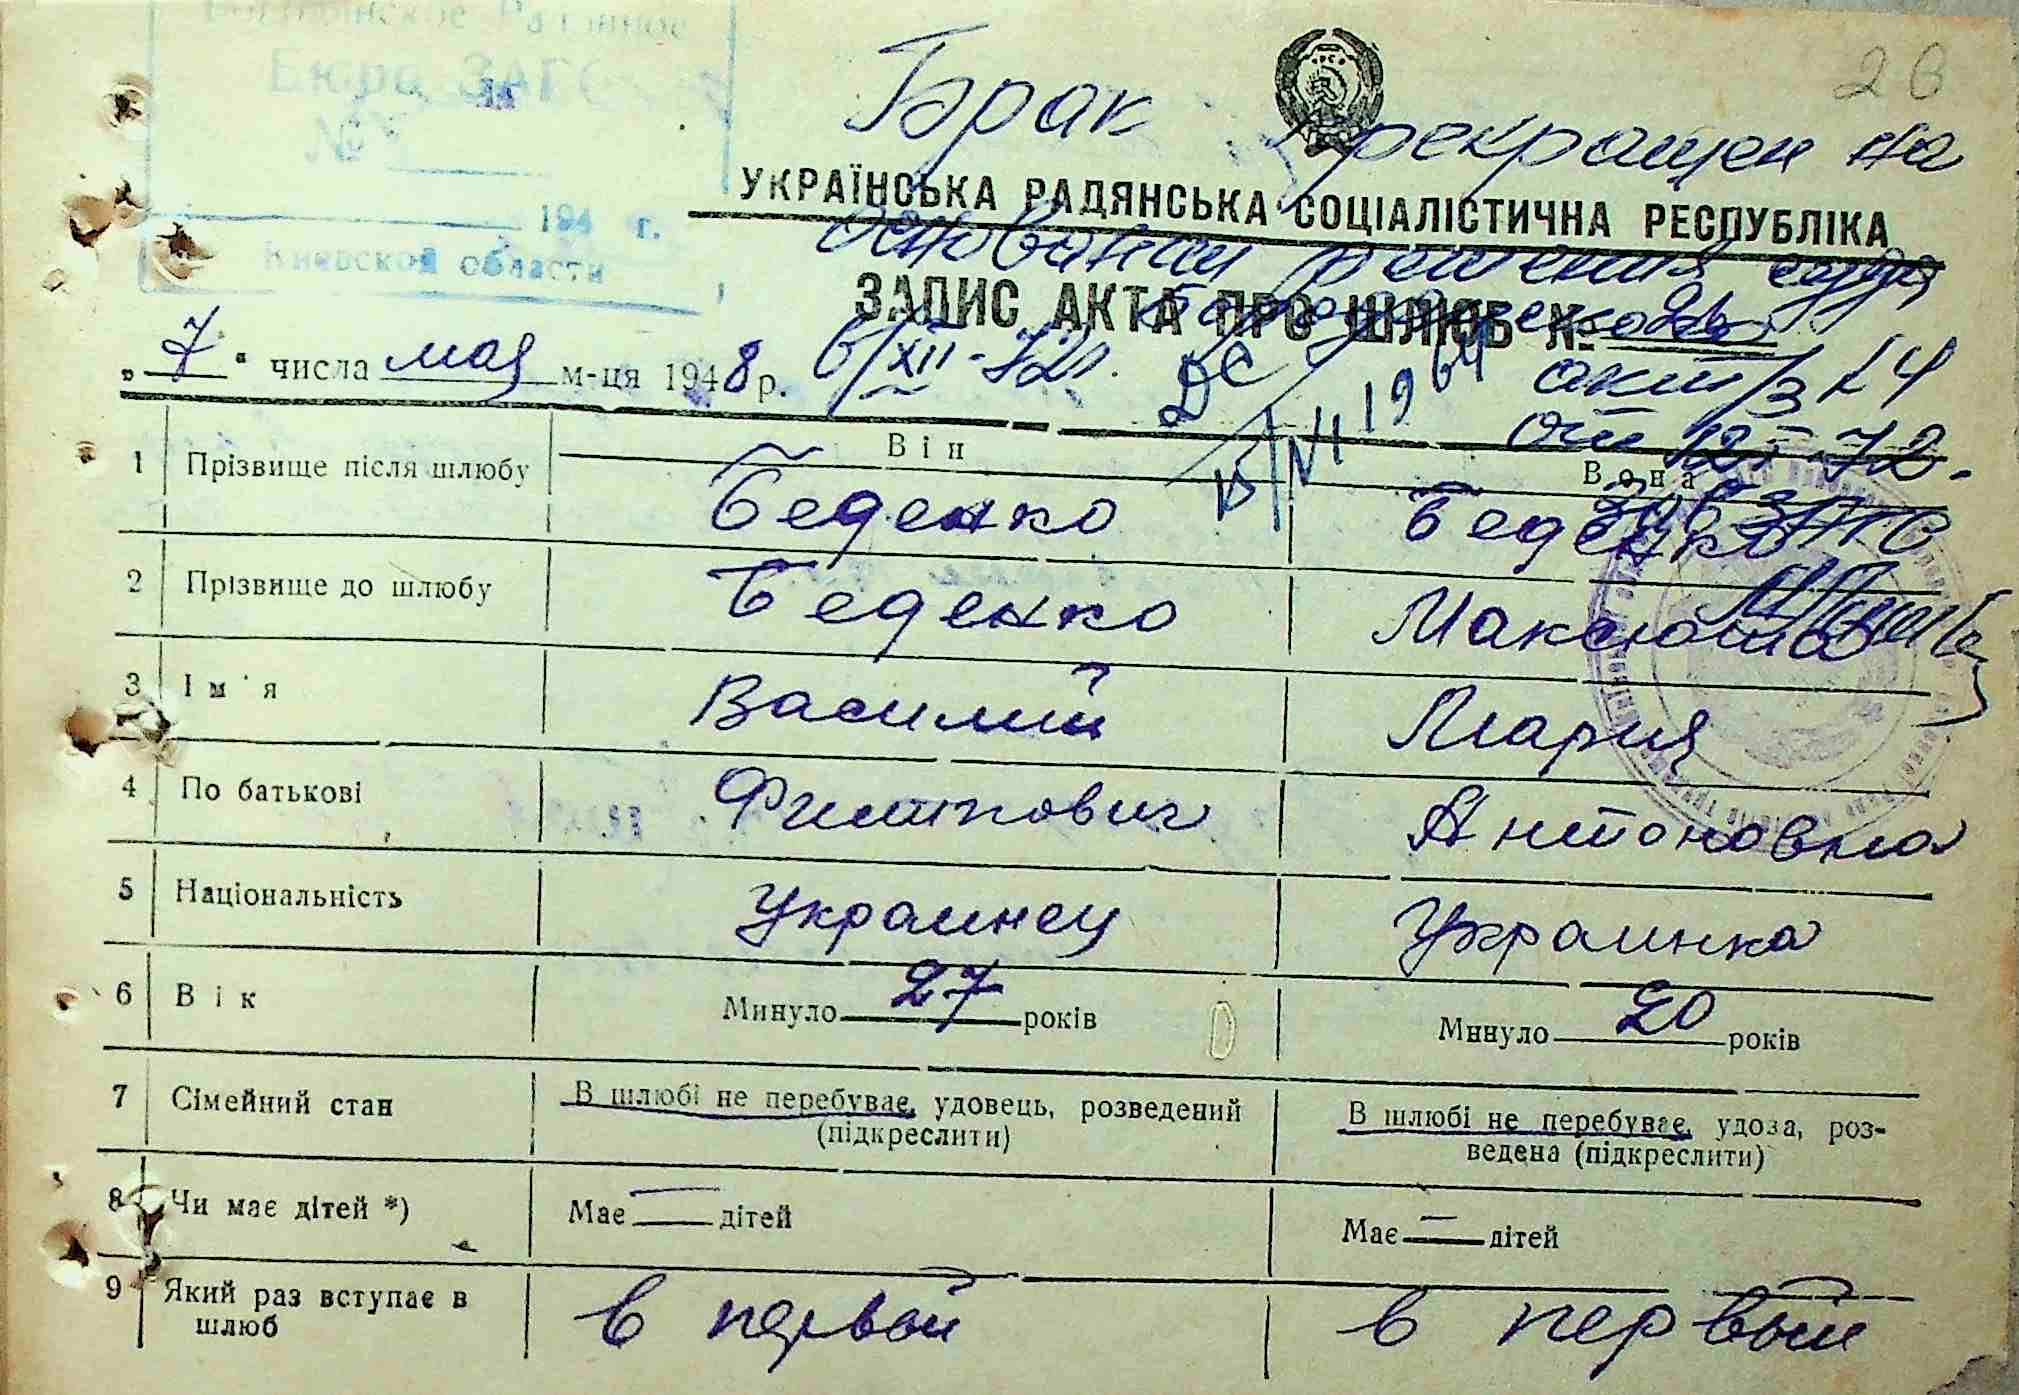 Бюро ЗАГС
№
194 г.
Киевской области
26
Брак прекращен на
УКРАЇНСЬКА РАДЯНСЬКА СОЦІАЛІСТИЧНА РЕСПУБЛІКА
основании решения суда
ЗАПИС АКТА ПРО ШЛЮБ №
„ 7 “ числа мая м-ця 1948 р.
6/XII-72г.
акт/з
от 72.
зав ЗАГС
Він Вона
1 Прізвище після шлюбу Беденко Беденко
2 Прізвище до шлюбу Беденко Максюта
3 Ім'я Василий Мария
4 По батькові Филиппович Антоновна
5 Національність Украинец Украинка
6 Вік Минуло 27 років Минуло 20 років
7 Сімейний стан В шлюбі не перебуває, удовець, розведений (підкреслити) В шлюбі не перебуває, удова, роз-
ведена (підкреслити)
8 Чи має дітей *) Має — дітей Має — дітей
9 Який раз вступає в в первый в первый
шлюб